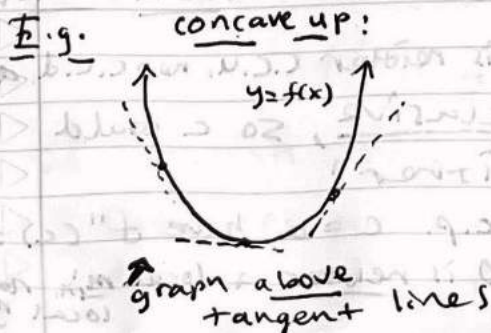 E.g. concave up:
y=f(x)
graph above
tangent lines